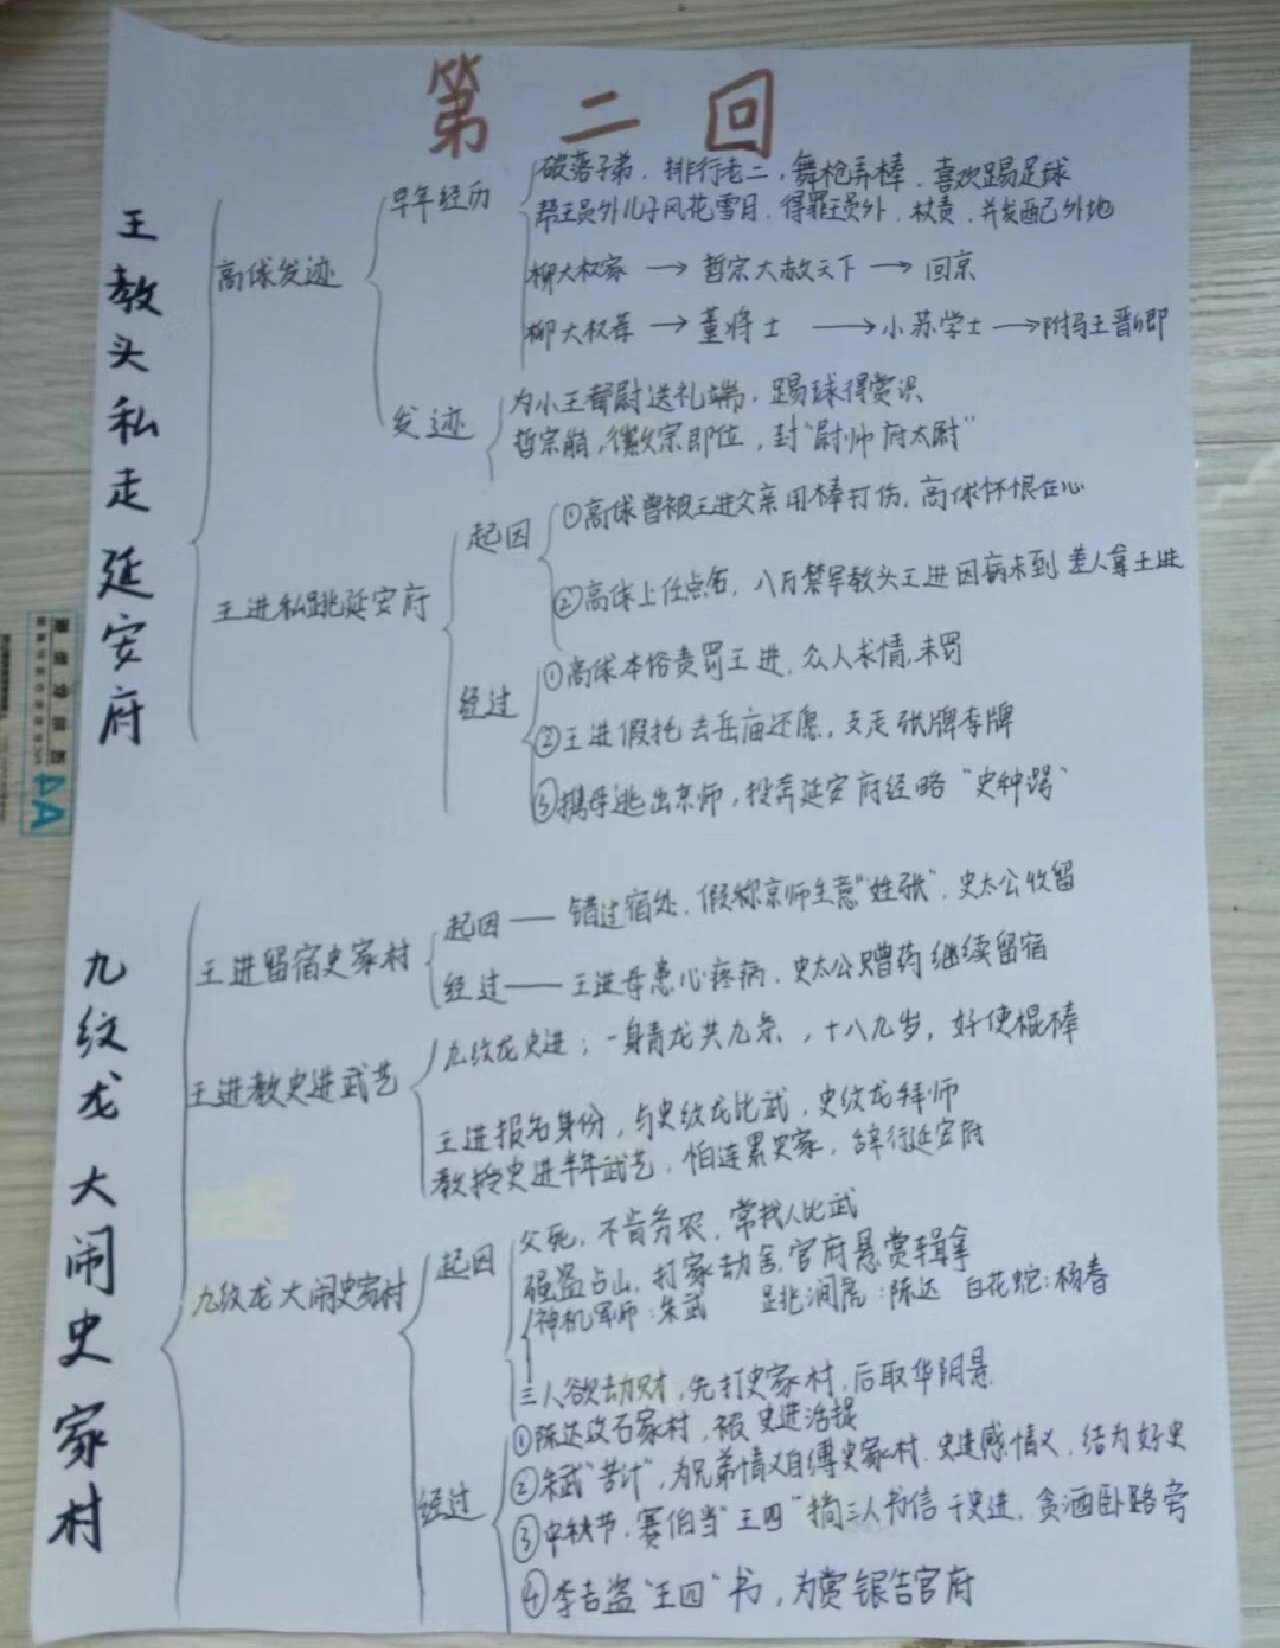 第二回
王教头私走延安府
高俅发迹
早年经历
破落子弟，排行老二，舞枪弄棒，喜欢踢足球
帮王员外儿子风花雪月，得罪王员外，杖责，并发配己外地
柳大权家 → 哲宗大赦天下 → 回京
柳大权荐 → 董将士 → 小苏学士 → 附马王晋卿
发迹
为小王都尉送礼端，踢球得赏识
哲宗崩，徽宗即位，封"尉帅府太尉"
王进私跳延安府
起因
①高俅曾被王进父亲用棒打伤，高俅怀恨在心
②高俅上任点名，八万禁军教头王进因病未到 差人拿王进
经过
①高俅本俗责罚王进，众人求情，未罚
②王进假托去岳庙还愿，支走张牌李牌
③携母逃出京师，投奔延安府经略"史种踢"
九纹龙大闹史家村
王进留宿史家村
起因——错过宿处，假称京师生意"姓张"，史太公收留
经过——王进母患心疼病，史太公赠药继续留宿
王进教史进武艺
九纹龙史进：一身青龙共九条，十八九岁，好使棍棒
王进报名身份，与史纹龙比武，史纹龙拜师
教授史进半年武艺，怕连累史家，辞行延安府
九纹龙大闹史家村
起因
父死，不肯务农，常找人比武
强盗占山，打家劫舍，官府悬赏缉拿
神机军师：朱武 跳涧虎：陈达 白花蛇：杨春
三人欲劫财，先打史家村，后取华阴县
经过
①陈达攻石家村，被史进活捉
②朱武"苦计"，为兄弟情义自缚史家村，史进感情义，结为好史
③中秋节，赛伯当"王四"捎三人书信于史进，贪酒卧路旁
④李吉盗"王四"书，为赏银告官府
AA